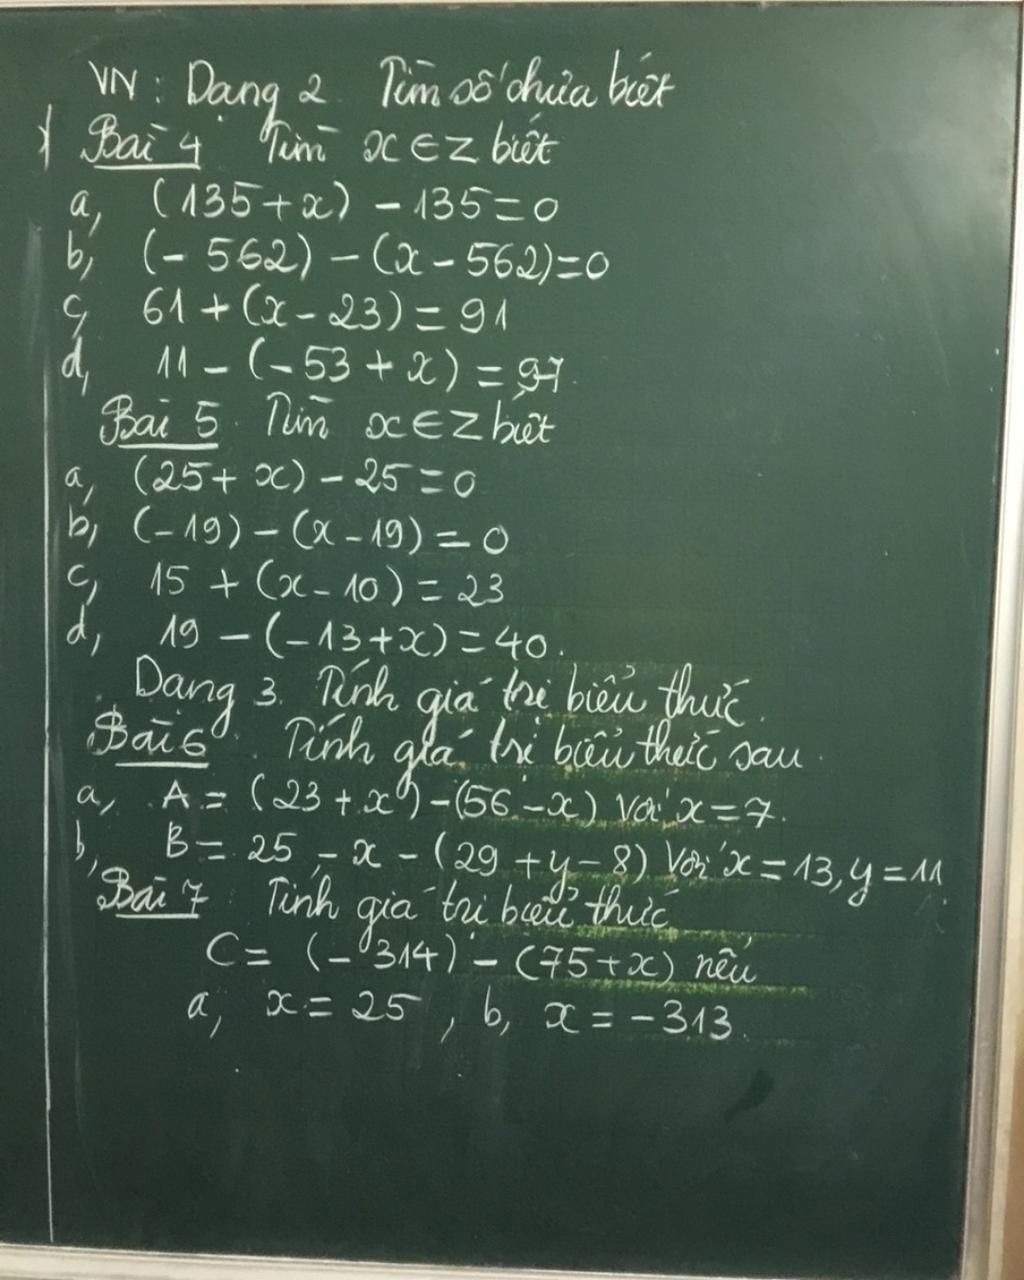 VN : Dạng 2 Tìm số chưa biết
Bài 4 Tìm x ∈ Z biết
a, (135+x) - 135=0
b, (- 562) - (x - 562)=0
c, 61 + (x - 23) = 91
d, 11 - (-53 + x) = 97.
Bài 5. Tìm x ∈ Z biết
a, (25+ x) - 25 = 0
b, (-19) - (x - 19) = 0
c, 15 + (x - 10) = 23
d, 19 - (-13+x) = 40.
Dạng 3. Tính giá trị biểu thức.
Bài 6. Tính giá trị biểu thức sau.
a, A = (23 + x) - (56 - x) Với x = 7.
b, B = 25 - x - (29 + y - 8) Với x = 13, y = 11.
Bài 7 Tính giá trị biểu thức
C = (- 314) - (75+x) nếu
a, x = 25 , b, x = -313.